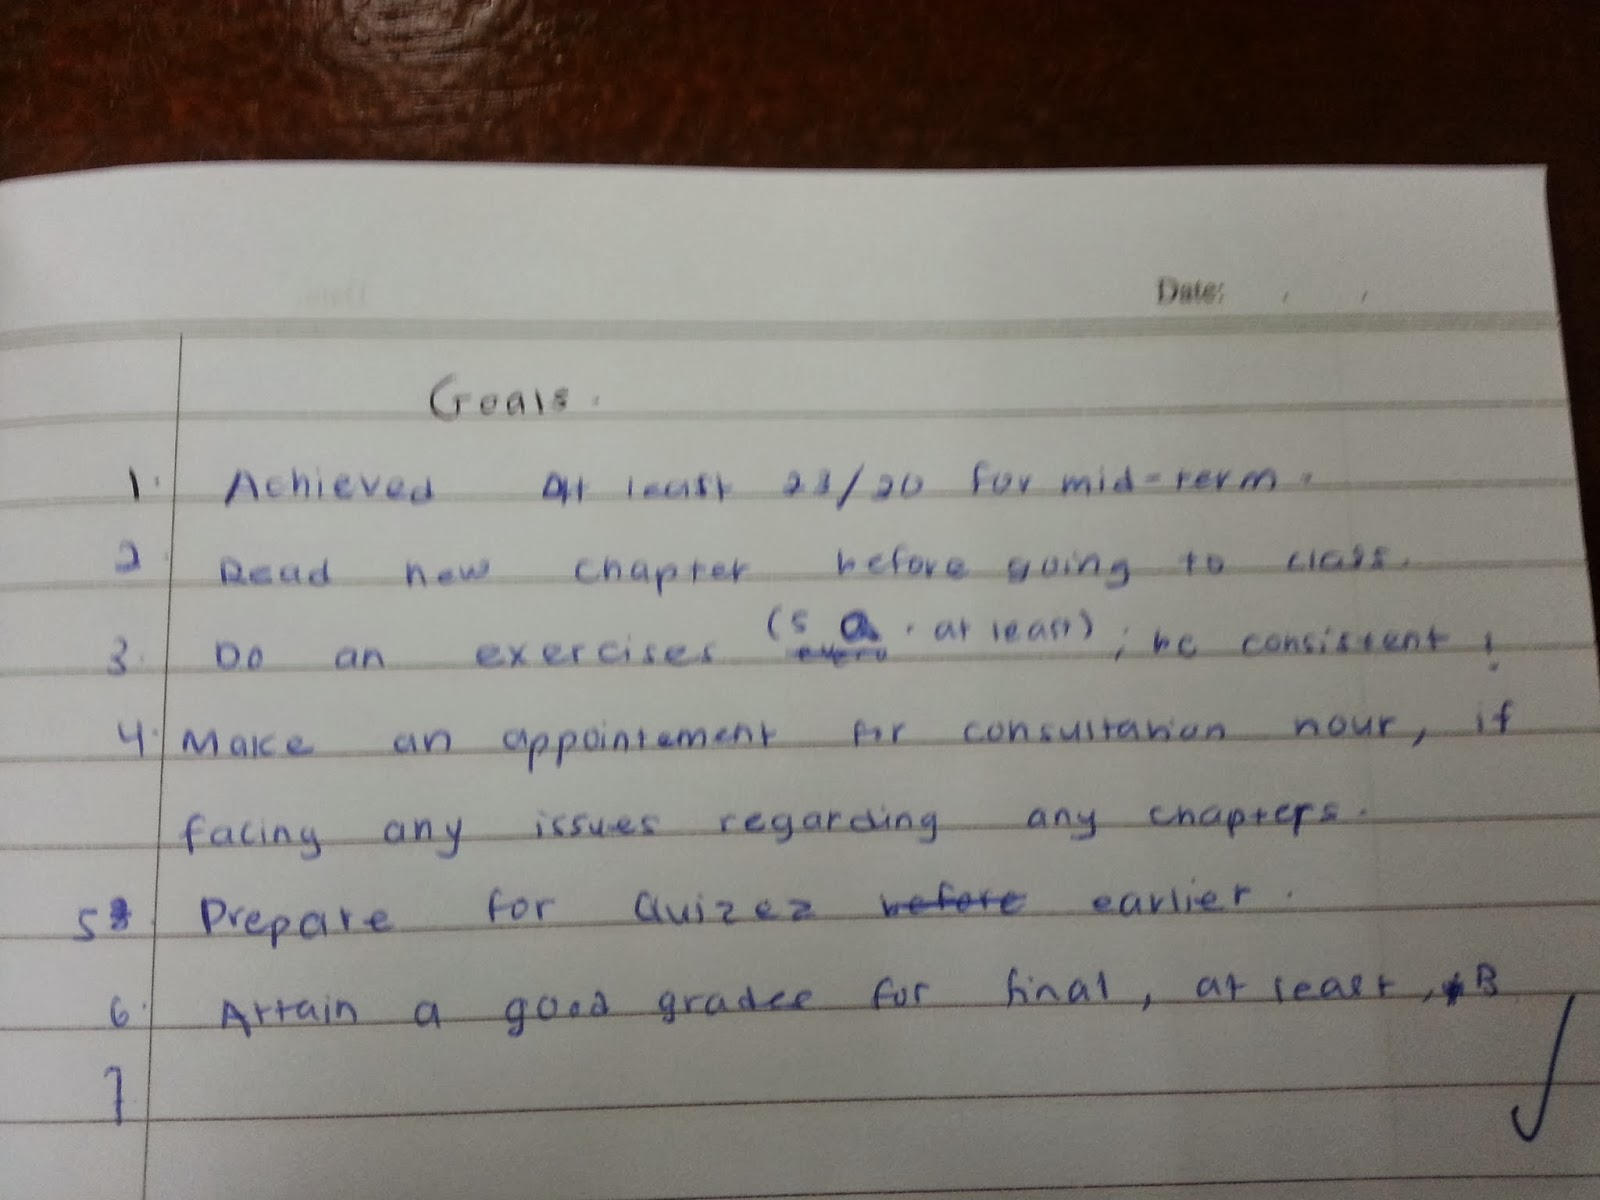 Date: / /
Goals.
1. Achieved At least 23/20 for mid-term.
2. Read new chapter before going to class.
3. Do an exercises (5 Q. at least) ; be consistent !
4. Make an appointement for consultation hour, if
facing any issues regarding any chapters.
5. Prepare for Quizez before earlier.
6. Attain a good gradee for final, at least, B
7